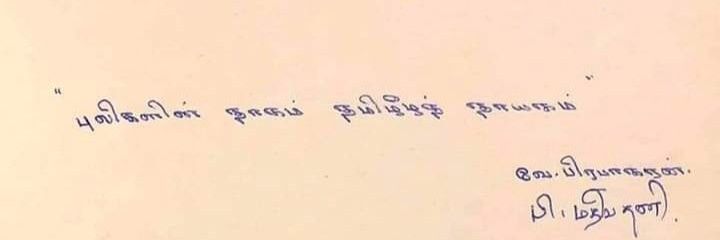 "புலிகளின் தாகம் தமிழீழத் தாயகம்"
வே. பிரபாகரன்.
பி. மதிவதனி.